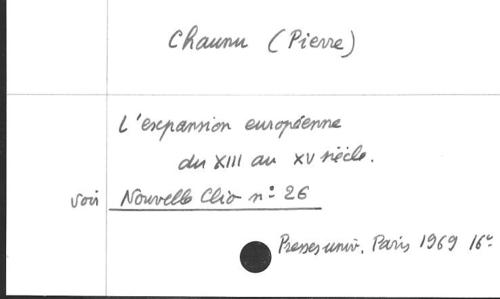 Chaunu (Pierre)
L'expansion européenne
du XIII au XV siècle.
voir Nouvelle Clio n° 26
Presses univ. Paris 1969 16°